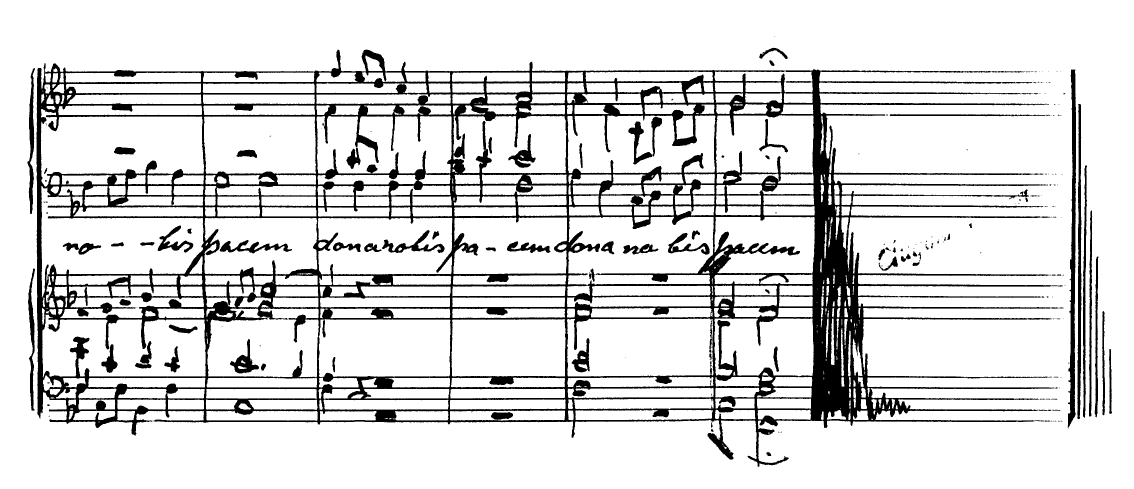 no - - bis pacem dona nobis pa - cem dona no bis pacem